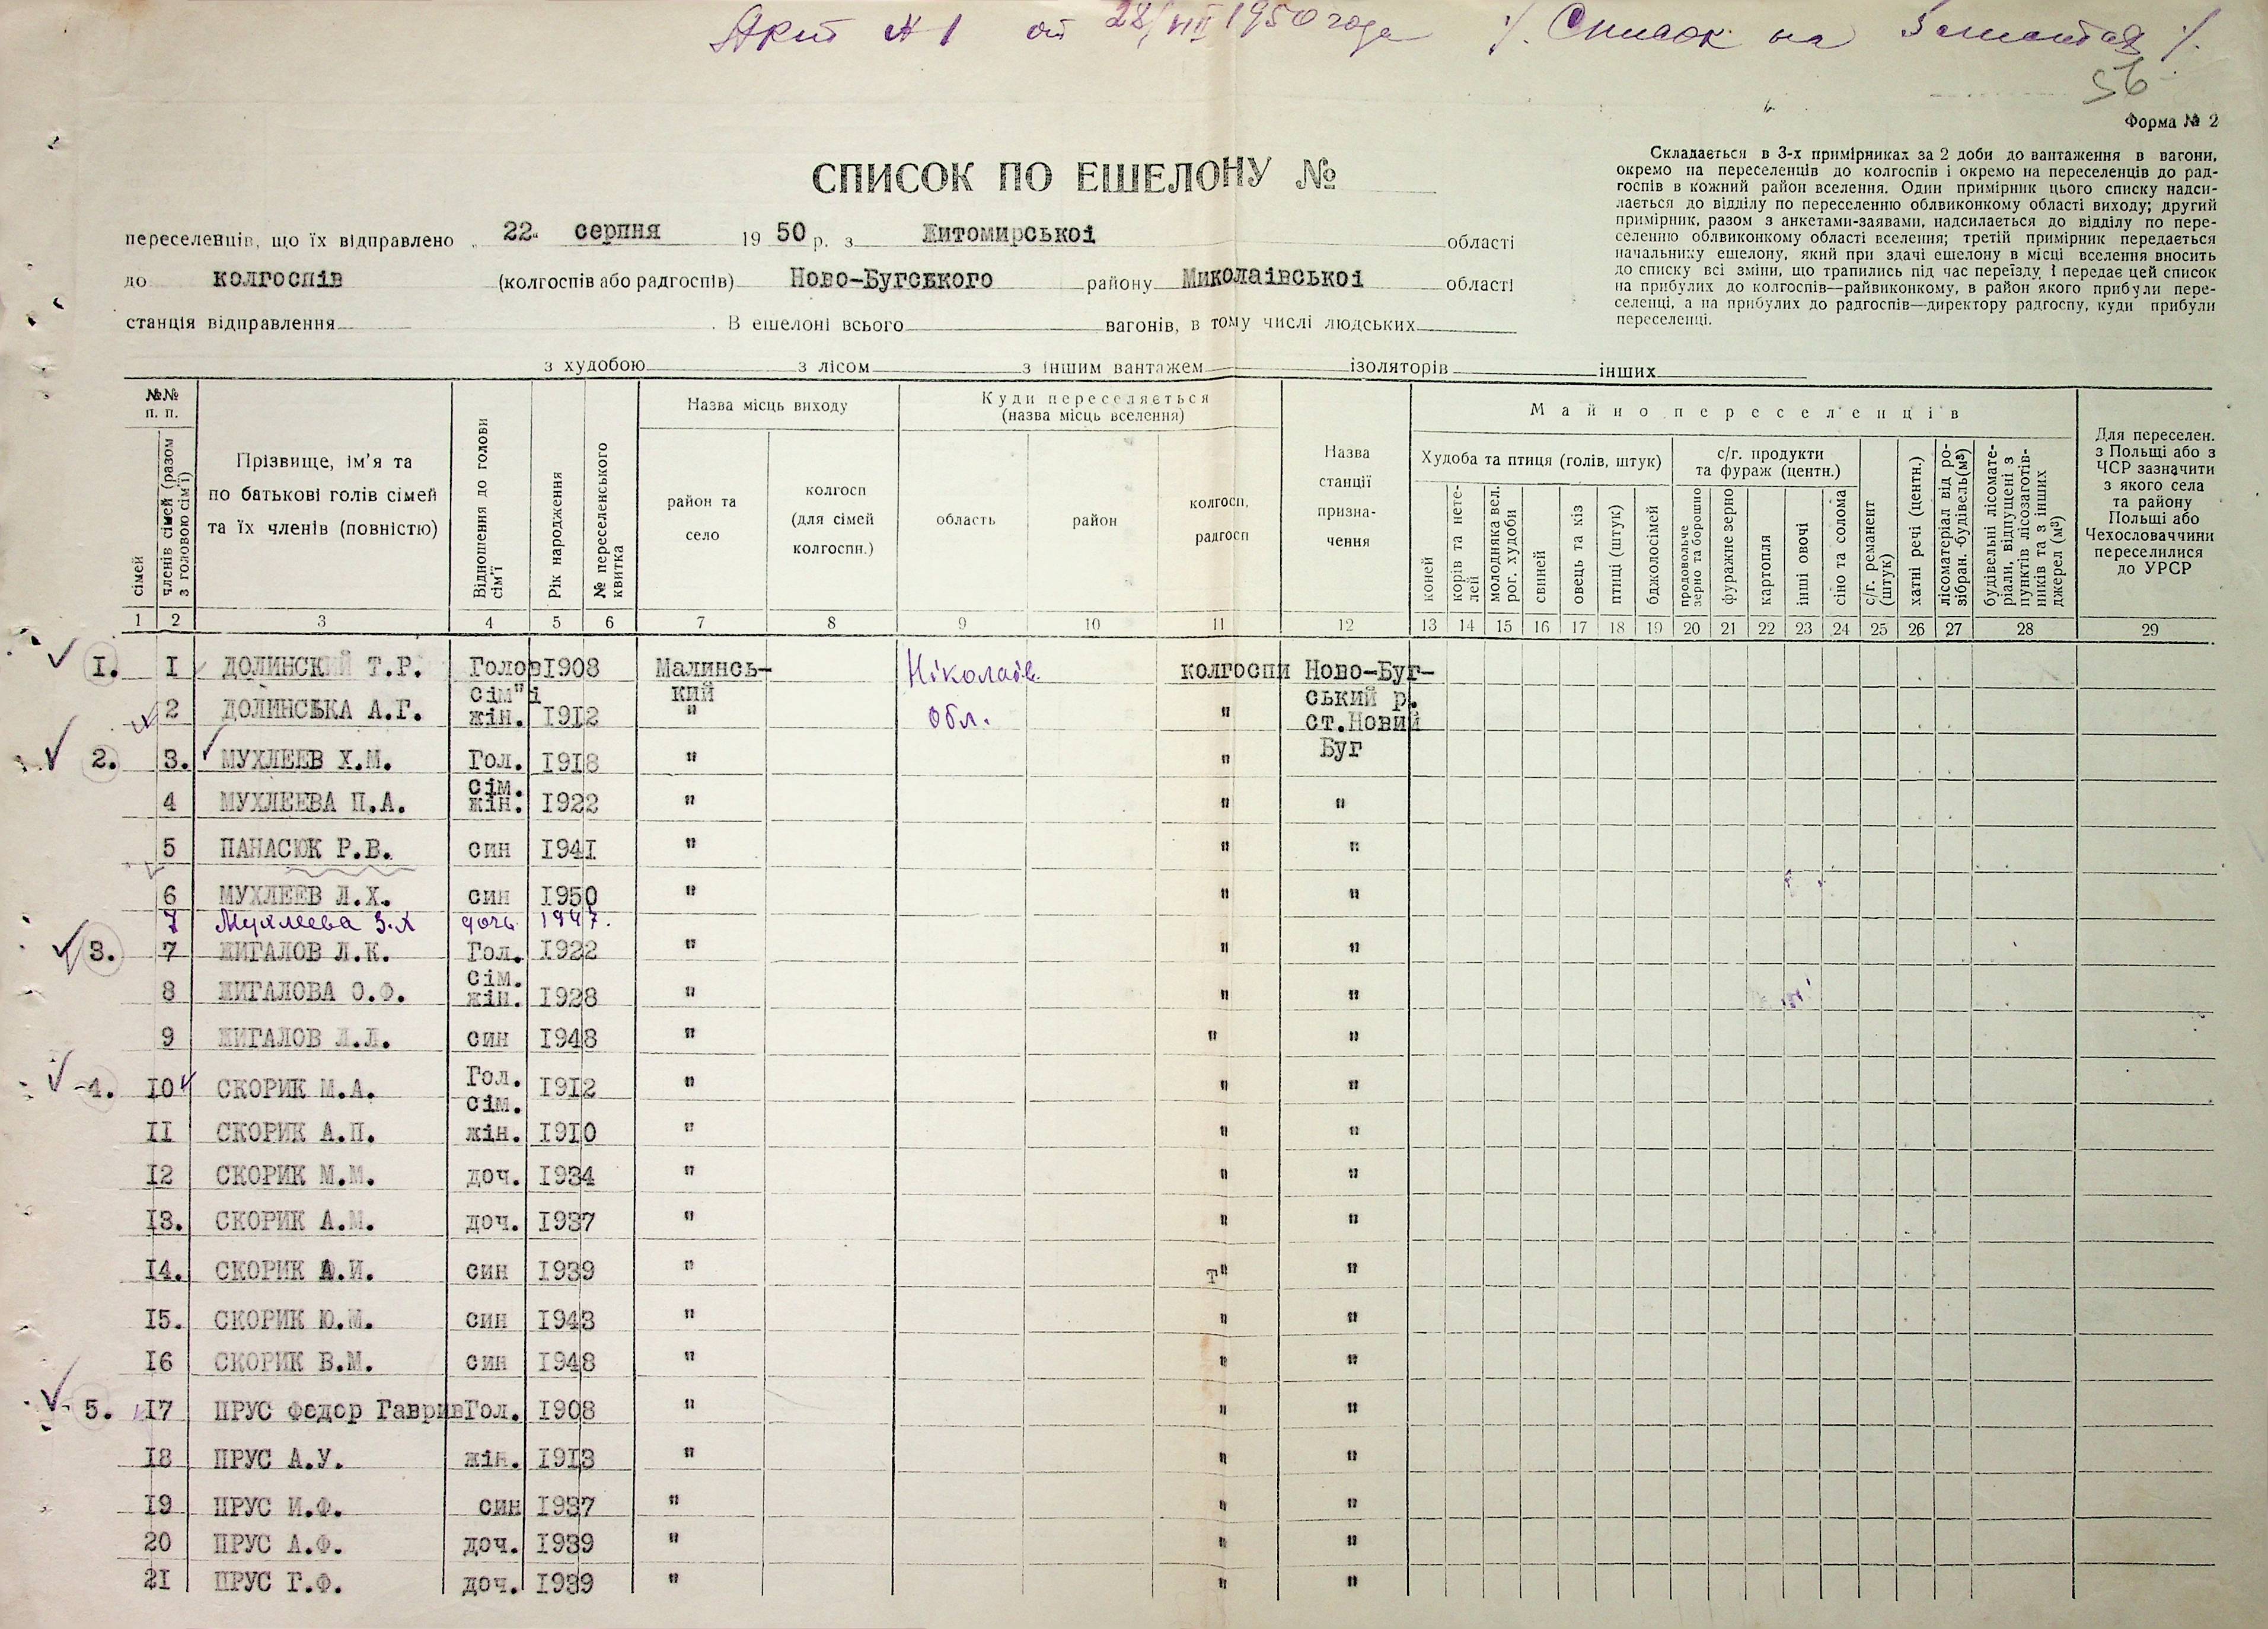 Акт № 1 от 28/VIII 1950 года /. Список на 3 листах /.
56
Форма № 2
СПИСОК ПО ЕШЕЛОНУ №
Складається в 3-х примірниках за 2 доби до вантаження в вагони,
окремо на переселенців до колгоспів і окремо на переселенців до рад-
госпів в кожний район вселення. Один примірник цього списку надси-
лається до відділу по переселенню облвиконкому області виходу; другий
примірник, разом з анкетами-заявами, надсилається до відділу по пере-
селенню облвиконкому області вселення; третій примірник передається
начальнику ешелону, який при здачі ешелону в місці вселення вносить
до списку всі зміни, що трапились під час переїзду, і передає цей список
на прибулих до колгоспів—райвиконкому, в район якого прибули пере-
селенці, а на прибулих до радгоспів—директору радгоспу, куди прибули
переселенці.
переселенців, що їх відправлено „ 22" серпня 19 50 р. з Житомирської області
до колгоспів (колгоспів або радгоспів) Ново-Бугського району Миколаівськоі області
станція відправлення . В ешелоні всього вагонів, в тому числі людських
з худобою з лісом з іншим вантажем ізоляторів інших
№№ п. п.
сімей
членів сімей (разом з головою сім'ї)
Прізвище, ім'я та
по батькові голів сімей
та їх членів (повністю)
Відношення до голови сім'ї
Рік народження
№ переселенського квитка
Назва місць виходу
район та
село
колгосп
(для сімей
колгоспн.)
Куди переселяється
(назва місць вселення)
область
район
колгосп,
радгосп
Назва
станції
призна-
чення
Майно переселенців
Худоба та птиця (голів, штук)
коней
корів та нете-
лей
молодняка вел.
рог. худоби
свиней
овець та кіз
птиці (штук)
бджолосімей
с/г. продукти
та фураж (центн.)
продовольче
зерно та борошно
фуражне зерно
картопля
інші овочі
сіно та солома
с/г. реманент
(штук)
хатні речі (центн.)
лісоматеріал від ро-
зібран. будівель (м³)
будівельні лісомате-
ріали, відпущені з
пунктів лісозаготів-
ників та з інших
джерел (м³)
Для переселен.
з Польщі або з
ЧСР зазначити
з якого села
та району
Польщі або
Чехословаччини
переселилися
до УРСР
1 2 3 4 5 6 7 8 9 10 11 12 13 14 15 16 17 18 19 20 21 22 23 24 25 26 27 28 29
1. I ДОЛИНСКИЙ Т.Р. Голов 1908 Малинсь- Ніколаїв. колгоспи Ново-Буг-
сім"ї кий ський р.
2 ДОЛИНСЬКА А.Г. жін. 1912 " Обл. " ст.Новий
Буг
2. 3. МУХЛЕЕВ Х.М. Гол. 1918 " "
сім.
4 МУХЛЕЕВА П.А. жін. 1922 " " "
5 ПАНАСЮК Р.В. син 1941 " " "
6 МУХЛЕЕВ Л.Х. син 1950 " " "
7 Мухлеева З.Х дочь 1947.
3. 7 ЖИГАЛОВ Л.К. Гол. 1922 " " "
сім.
8 ЖИГАЛОВА О.Ф. жін. 1928 " " "
9 ЖИГАЛОВ Л.Л. син 1948 " " "
4. 10 СКОРИК М.А. Гол. 1912 " " "
сім.
II СКОРИК А.П. жін. 1910 " " "
12 СКОРИК М.М. доч. 1934 " " "
13. СКОРИК А.М. доч. 1937 " " "
14. СКОРИК А.И. син 1939 " т" "
15. СКОРИК Ю.М. син 1943 " " "
16 СКОРИК В.М. син 1948 " " "
5. 17 ПРУС Федор Гаврив Гол. 1908 " " "
18 ПРУС А.У. жін. 1913 " " "
19 ПРУС И.Ф. син 1937 " " "
20 ПРУС А.Ф. доч. 1939 " " "
21 ПРУС Г.Ф. доч. 1939 " " "